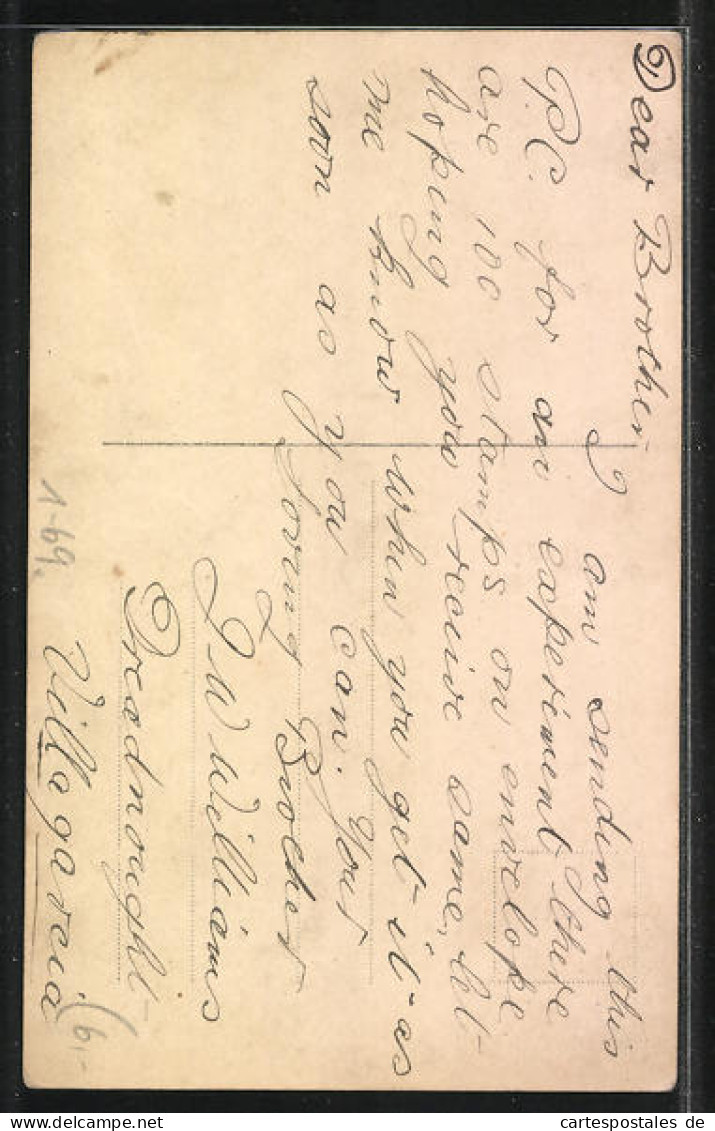 Dear Brother
I am sending this
P.C. for an experiment there
are 100 stamps on envelope
hoping you receive same, let
me know when you get it as
soon as you can. Your
loving Brother
J. W Williams
Dreadnought
Villagarcia
1-69.
6,-
cartespostales de